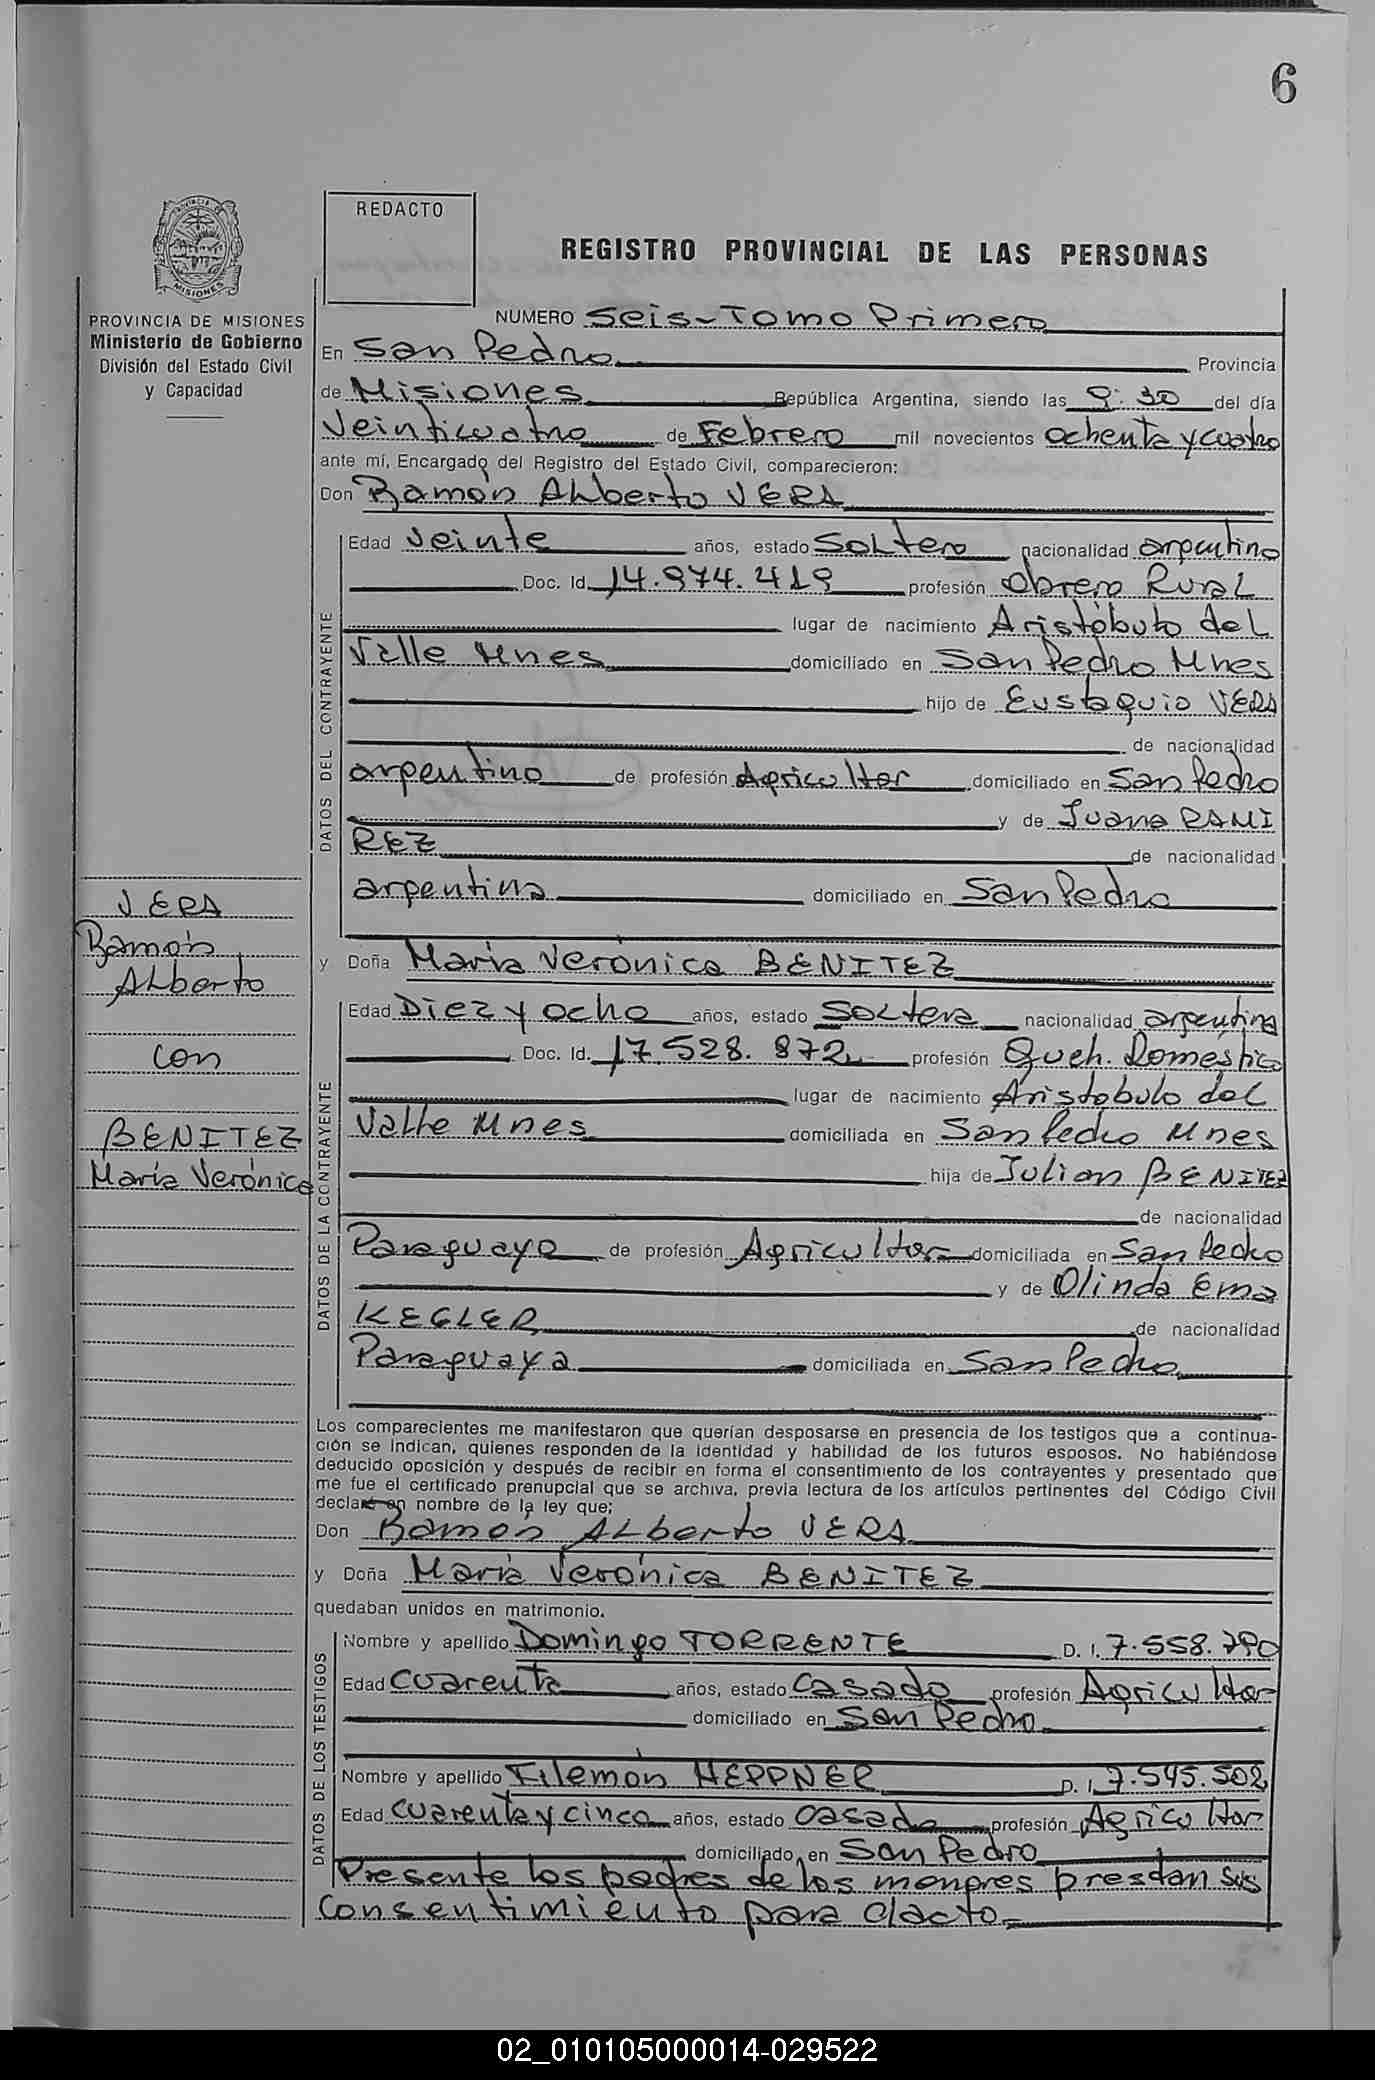 6
REDACTO
REGISTRO PROVINCIAL DE LAS PERSONAS
MISIONES
PROVINCIA DE MISIONES
Ministerio de Gobierno
División del Estado Civil
y Capacidad
VERA
Ramón
Alberto
con
BENITEZ
María Verónica
NUMERO Seis-Tomo Primero
En San Pedro Provincia
de Misiones República Argentina, siendo las 9:30 del día
Veinticuatro de Febrero mil novecientos ochenta y cuatro
ante mí, Encargado del Registro del Estado Civil, comparecieron:
Don Ramón Alberto VERA
DATOS DEL CONTRAYENTE
Edad veinte años, estado Soltero nacionalidad argentino
Doc. Id. 14.974.419 profesión Obrero Rural
lugar de nacimiento Aristóbulo del
Valle Mnes domiciliado en San Pedro Mnes
hijo de Eustaquio VERA
de nacionalidad
argentino de profesión Agricultor domiciliado en San Pedro
y de Juana RAMI
REZ de nacionalidad
argentina domiciliado en San Pedro
y Doña María Verónica BENITEZ
DATOS DE LA CONTRAYENTE
Edad Diez y ocho años, estado Soltera nacionalidad argentina
Doc. Id. 17.528.872 profesión Queh. Doméstico
lugar de nacimiento Aristobulo del
Valle Mnes domiciliada en San Pedro Mnes
hija de Julian BENITEZ
de nacionalidad
Paraguaya de profesión Agricultor domiciliada en San Pedro
y de Olinda Ema
KEGLER de nacionalidad
Paraguaya domiciliada en San Pedro
Los comparecientes me manifestaron que querían desposarse en presencia de los testigos que a continua-
ción se indican, quienes responden de la identidad y habilidad de los futuros esposos. No habiéndose
deducido oposición y después de recibir en forma el consentimiento de los contrayentes y presentado que
me fue el certificado prenupcial que se archiva, previa lectura de los artículos pertinentes del Código Civil
declaré en nombre de la ley que;
Don Ramón Alberto VERA
y Doña María Verónica BENITEZ
quedaban unidos en matrimonio.
DATOS DE LOS TESTIGOS
Nombre y apellido Domingo TORRENTE D. I. 7.558.790
Edad cuarenta años, estado casado profesión Agricultor
domiciliado en San Pedro
Nombre y apellido Filemón HEPPNER D. I. 7.545.502
Edad cuarenta y cinco años, estado casado profesión Agricultor
domiciliado en San Pedro
Presente los padres de los menores prestan sus
Consentimiento para el acto
02_010105000014-029522